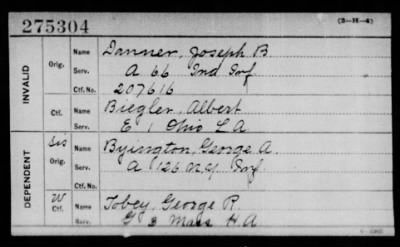 275304 (3-H-4)
INVALID
Orig. Name Danner, Joseph B.
Serv. A 66 Ind Inf
Ctf. No. 207616
Ctf. Name Biegler, Albert
Serv. E 1 Ohio L A
DEPENDENT
Sis Orig. Name Byington, George A.
Serv. A 126 N.Y. Inf.
W Ctf. Name Tobey, George P.
Serv. G 3 Mass H A